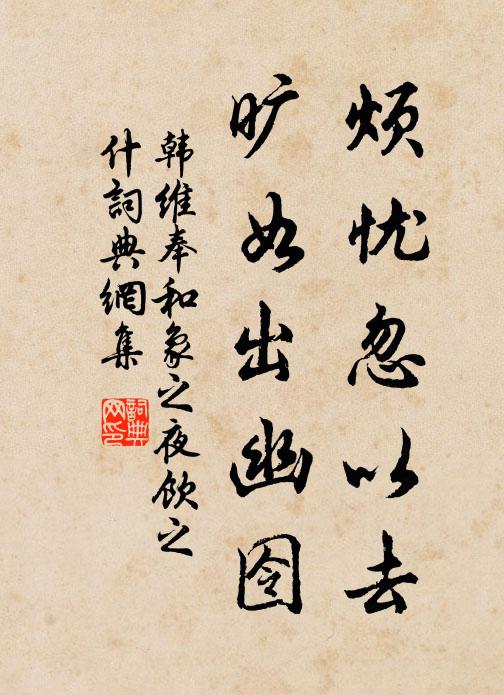 烦忧忽以去
旷如出幽囹
韩维奉和象之夜饮之
什詞典網集
詞典网印